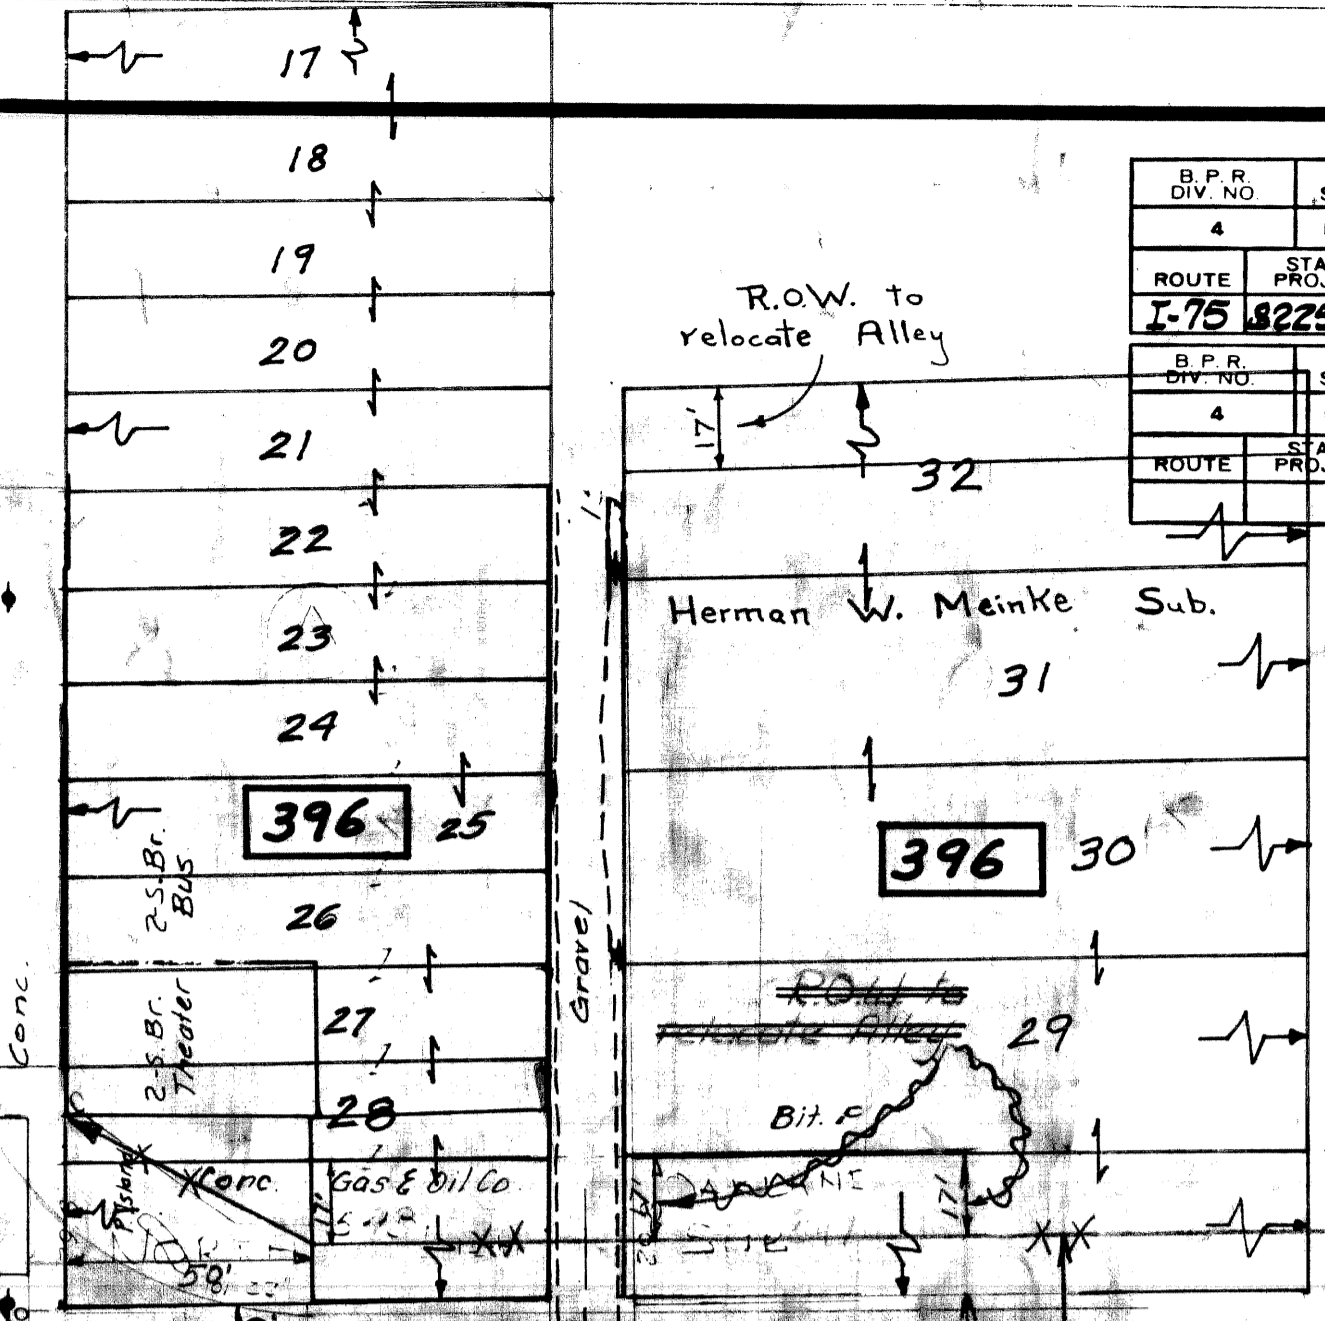 17
18
19
20
21
22
23
24
396
25
26
27
28
2-S.Br.
Bus
2-S.Br.
Theater
Conc.
P. Island
Conc.
Gas & Oil Co
17'
58'
Gravel
R.O.W. to
relocate Alley
17'
32
Herman W. Meinke Sub.
31
396
30
R.O.W. to
relocate Alley
29
Bit.
17'
B. P. R.
DIV. NO.
4
ROUTE
I-75
B. P. R.
DIV. NO.
4
ROUTE